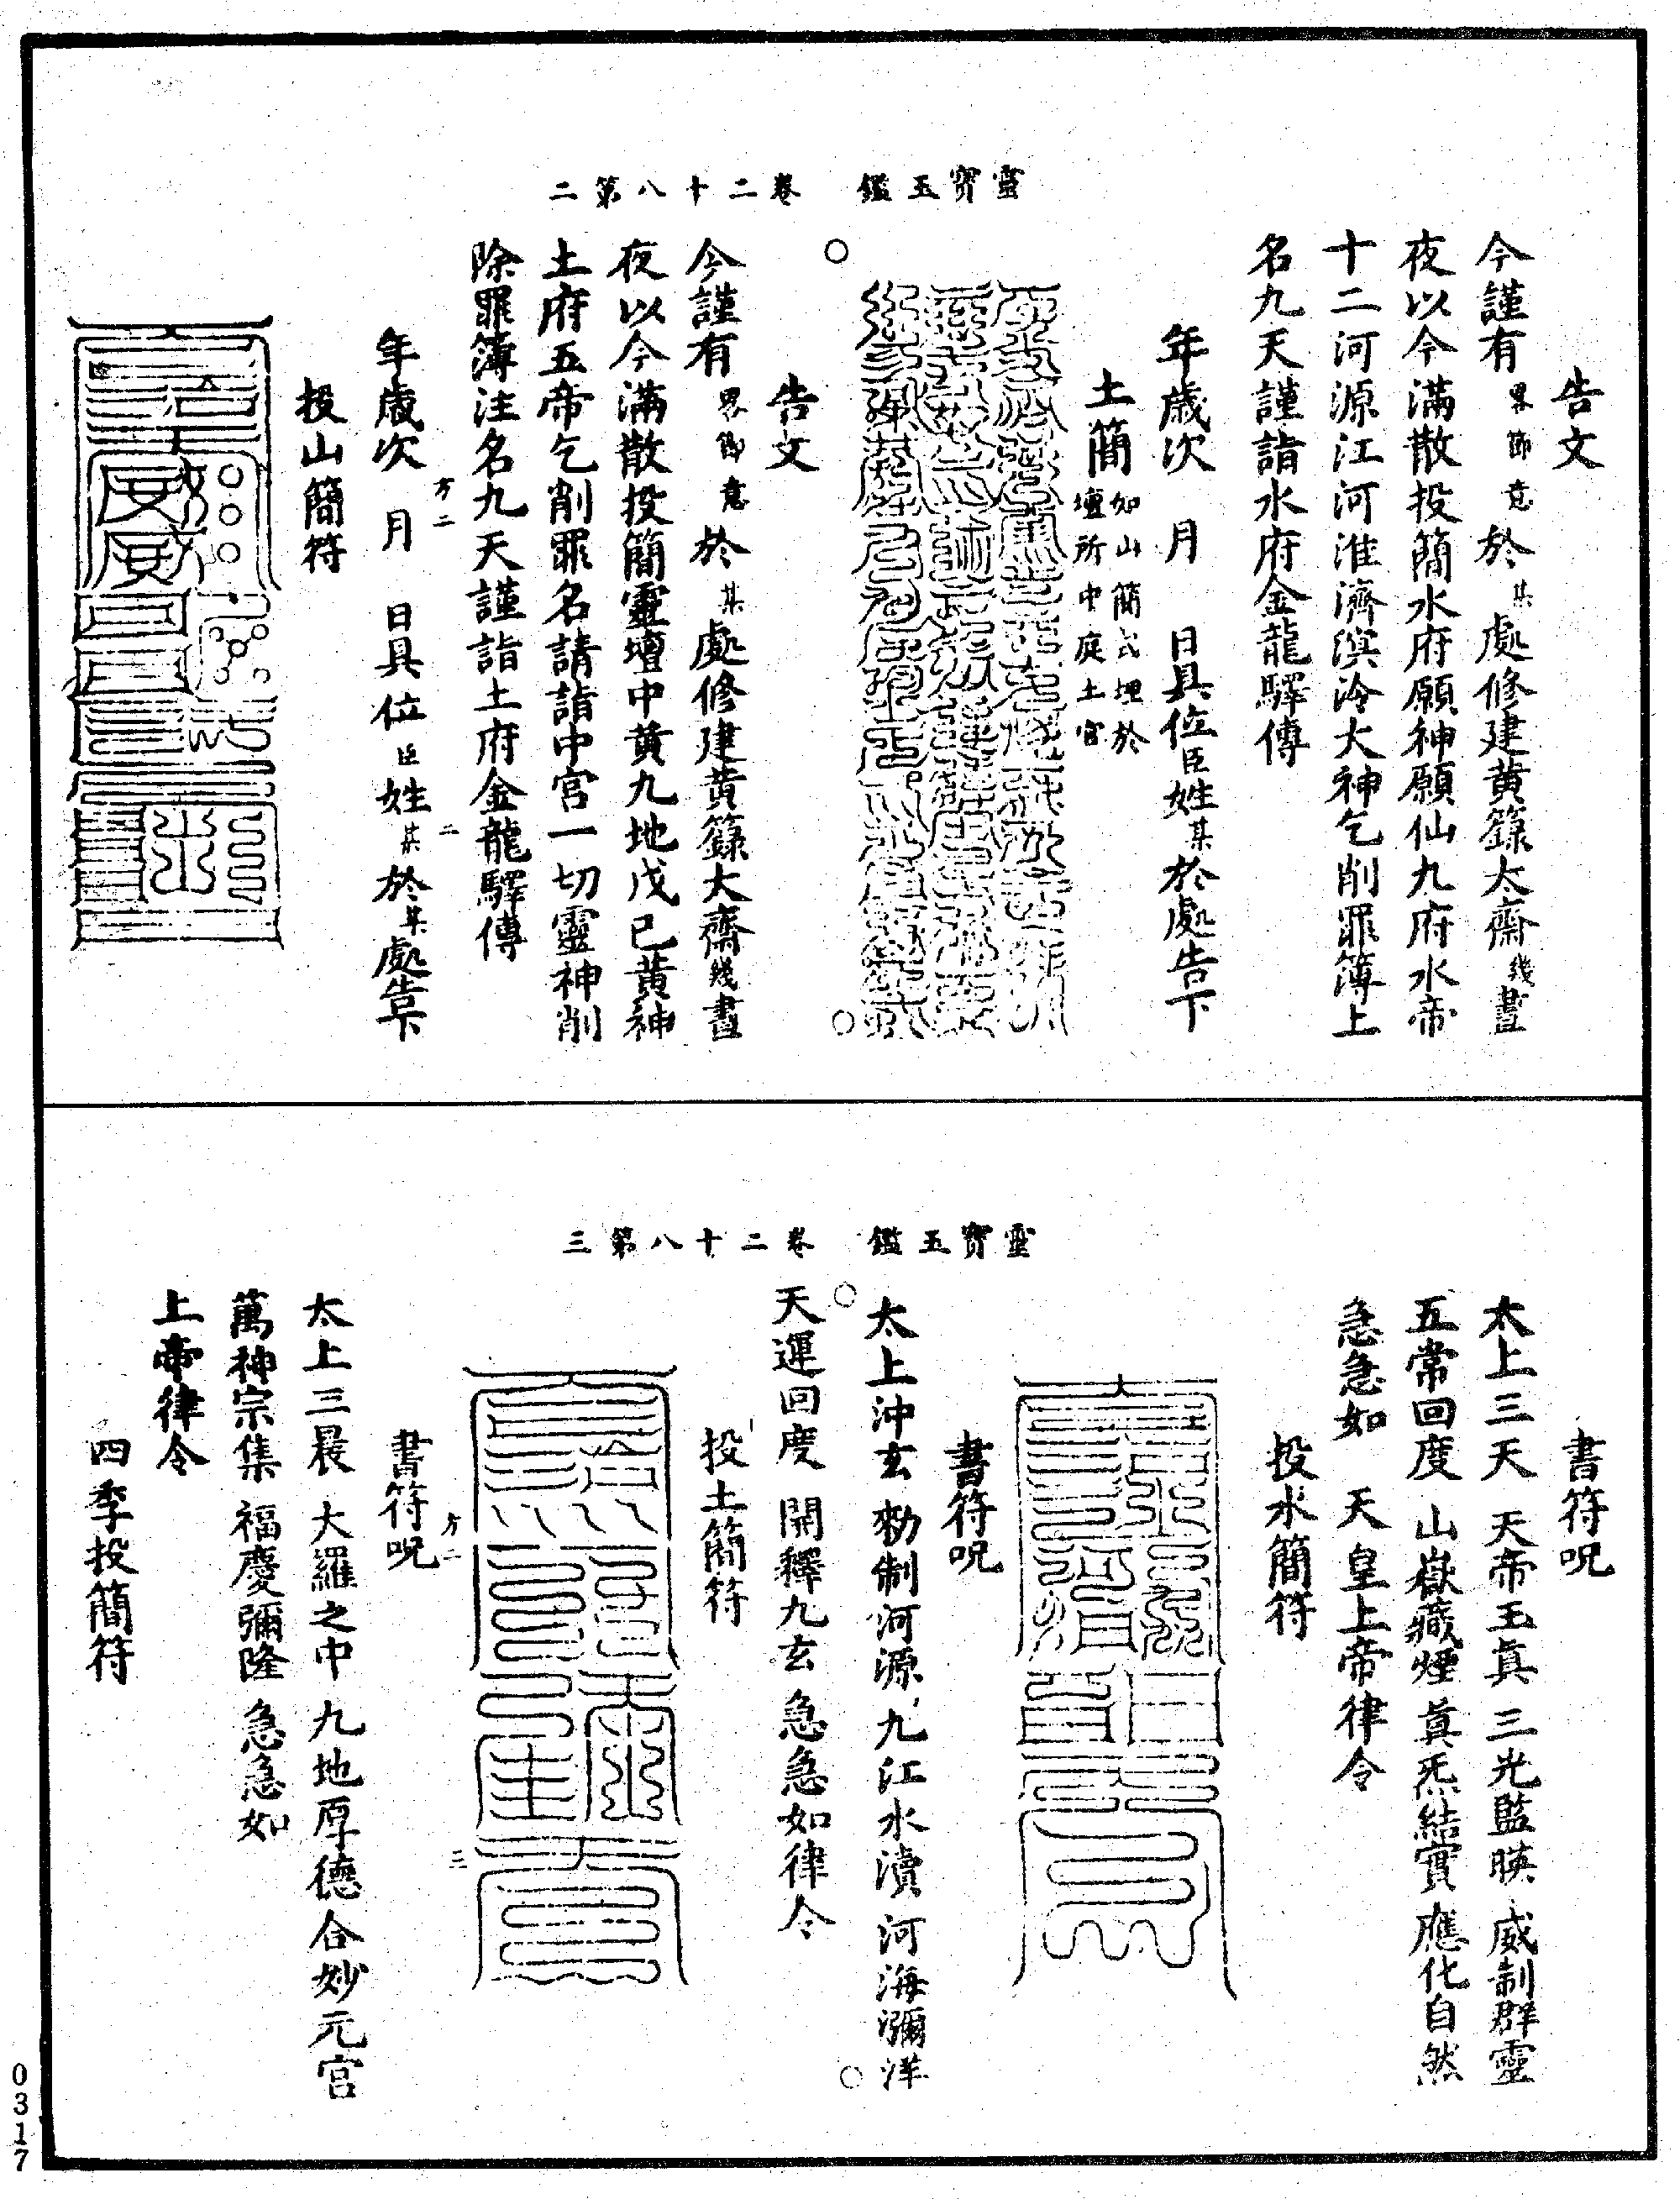 靈寶玉鑑 卷二十八第二
告文
今謹有畧節意於某處修建黄籙大齋幾晝
夜以今滿散投簡水府願神願仙九府水帝
十二河源江河淮濟溟泠大神乞削罪簿上
名九天謹詣水府金龍驛傳
年歲次 月 日具位臣姓某於處告下
土簡如山簡式埋於壇所中庭土官
告文
今謹有畧節意於某處修建黄籙大齋幾晝
夜以今滿散投簡靈壇中黄九地戊己黄神
土府五帝乞削罪名請詣中官一切靈神削
除罪簿注名九天謹詣土府金龍驛傳
方二 二
年歲次 月 日具位臣姓某於某處告下
投山簡符
靈寶玉鑑 卷二十八第三
書符呪
太上三天 天帝玉真 三光監暎 威制群靈
五常回度 山嶽藏煙 真炁結實 應化自然
急急如 天皇上帝律令
投水簡符
書符呪
太上沖玄 勑制河源 九江水瀆 河海瀰洋
天運回度 開釋九玄 急急如律令
投土簡符
方二 三
書符呪
太上三晨 大羅之中 九地厚德 合妙元宫
萬神宗集 福慶彌隆 急急如
上帝律令
四季投簡符
0317